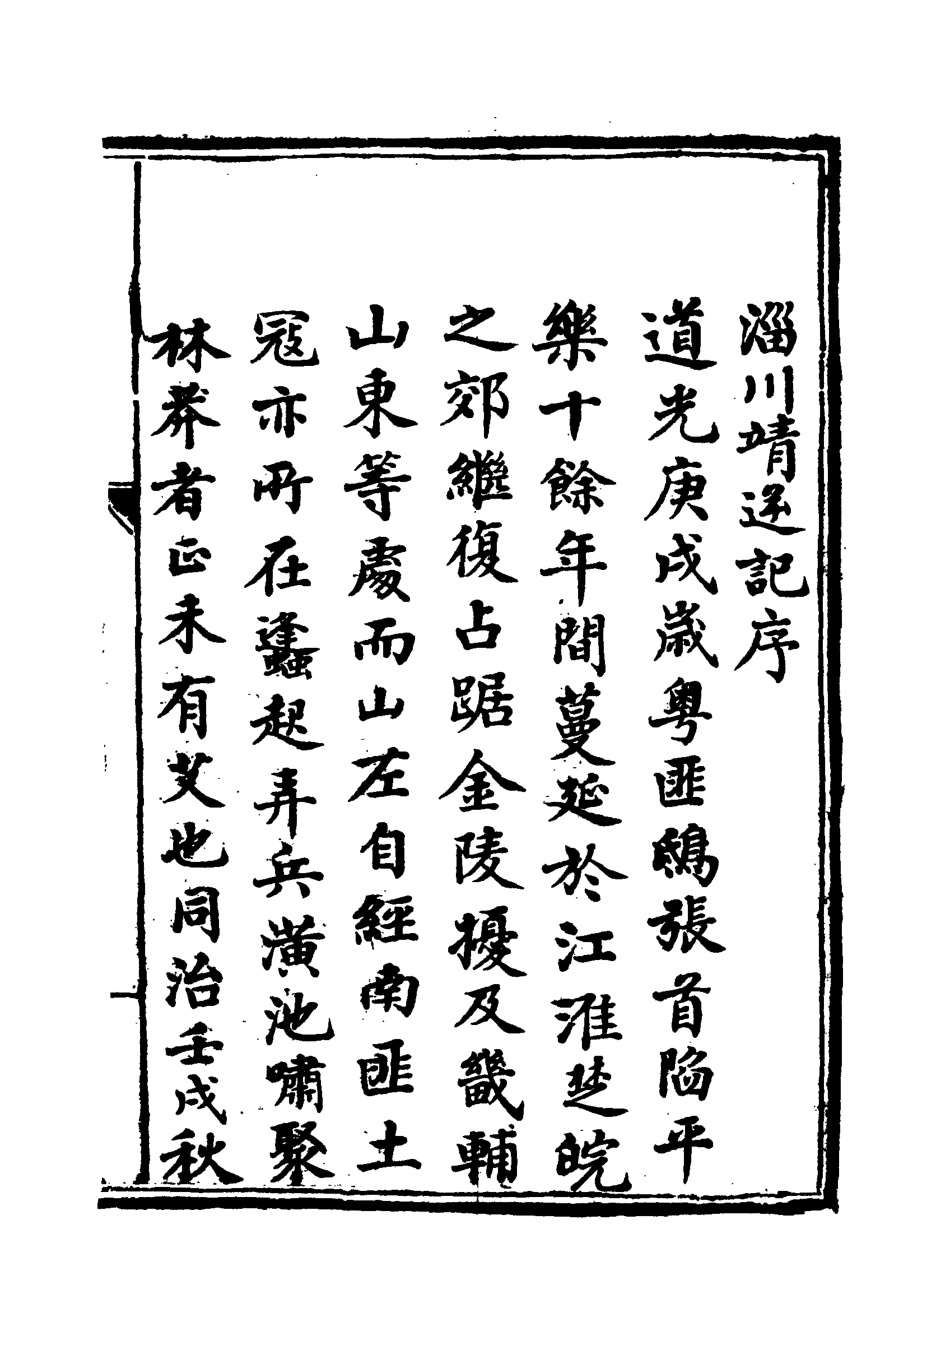 淄川靖逆記序
道光庚戌嵗粤匪鴟張首陷平
樂十餘年間蔓延於江淮楚皖
之郊繼復占踞金陵擾及畿輔
山東等處而山左自經南匪土
寇亦所在蠭起弄兵潢池嘯聚
林莽者正未有艾也同治壬戌秋